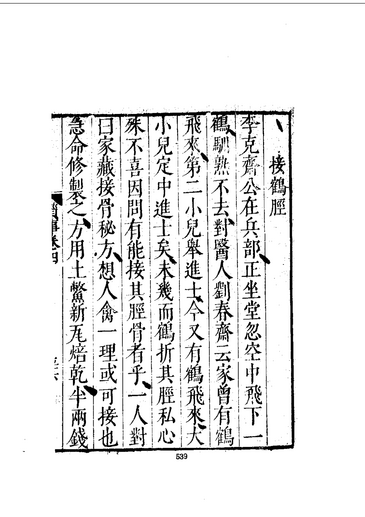 接鶴脛
李克齋公在兵部正坐堂忽空中飛下一
鶴馴熟不去對醫人劉春齋云家曾有鶴
飛來第二小兒舉進士今又有鶴飛來大
小兒定中進士矣未幾而鶴折其脛私心
殊不喜因問有能接其脛骨者乎一人對
曰家藏接骨秘方想人禽一理或可接也
急命修製之方用土鱉新瓦焙乾半兩錢
卷四
539